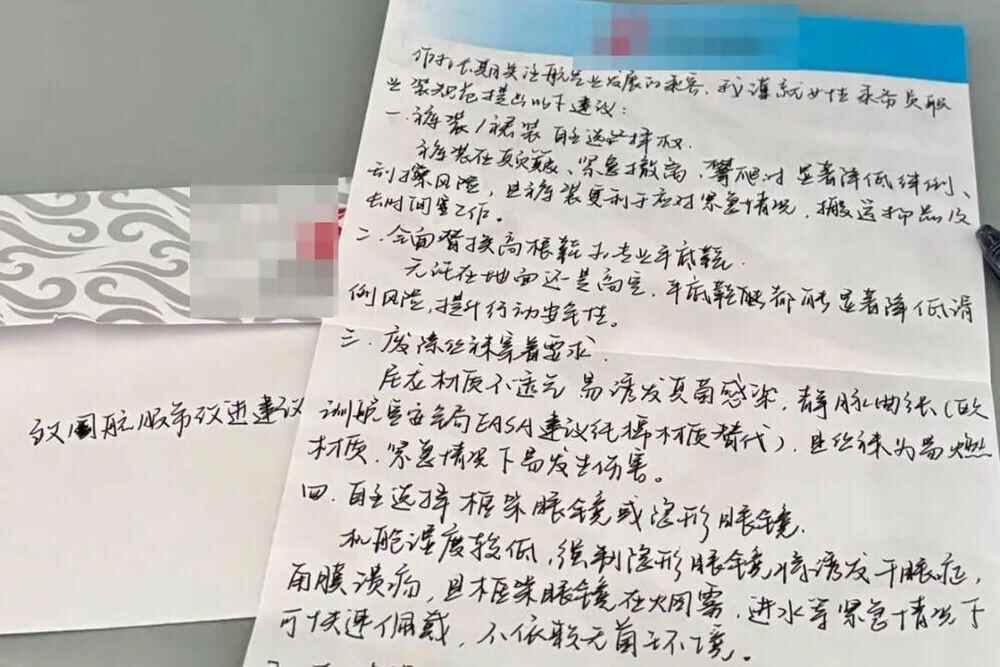 作为长期关注航空业发展的乘客，我谨就女性乘务员职
业装规范提出以下建议：
一、裤装/裙装自主选择权
裤装在   、紧急撤离、攀爬时显著降低绊倒、
刮擦风险，且裤装更利于应对紧急情况，搬运物品及
长时间客舱工作。
二、全面替换高根鞋为专业平底鞋.
无论在地面还是高空，平底鞋能都能显著降低滑
倒风险，提升行动安全性。
三、废除丝袜穿着要求.
尼龙材质不透气易诱发真菌感染，静脉曲张（欧
洲航空安全局EASA建议纯棉材质替代），且丝袜为易燃
材质，紧急情况下易发生伤害。
四、自主选择框架眼镜或隐形眼镜.
机舱湿度较低，强制隐形眼镜将诱发干眼症，
角膜溃疡，且框架眼镜在火因雾，进水等紧急情况下
可快速佩戴，不依赖无菌环境。
致国航服饰改进建议